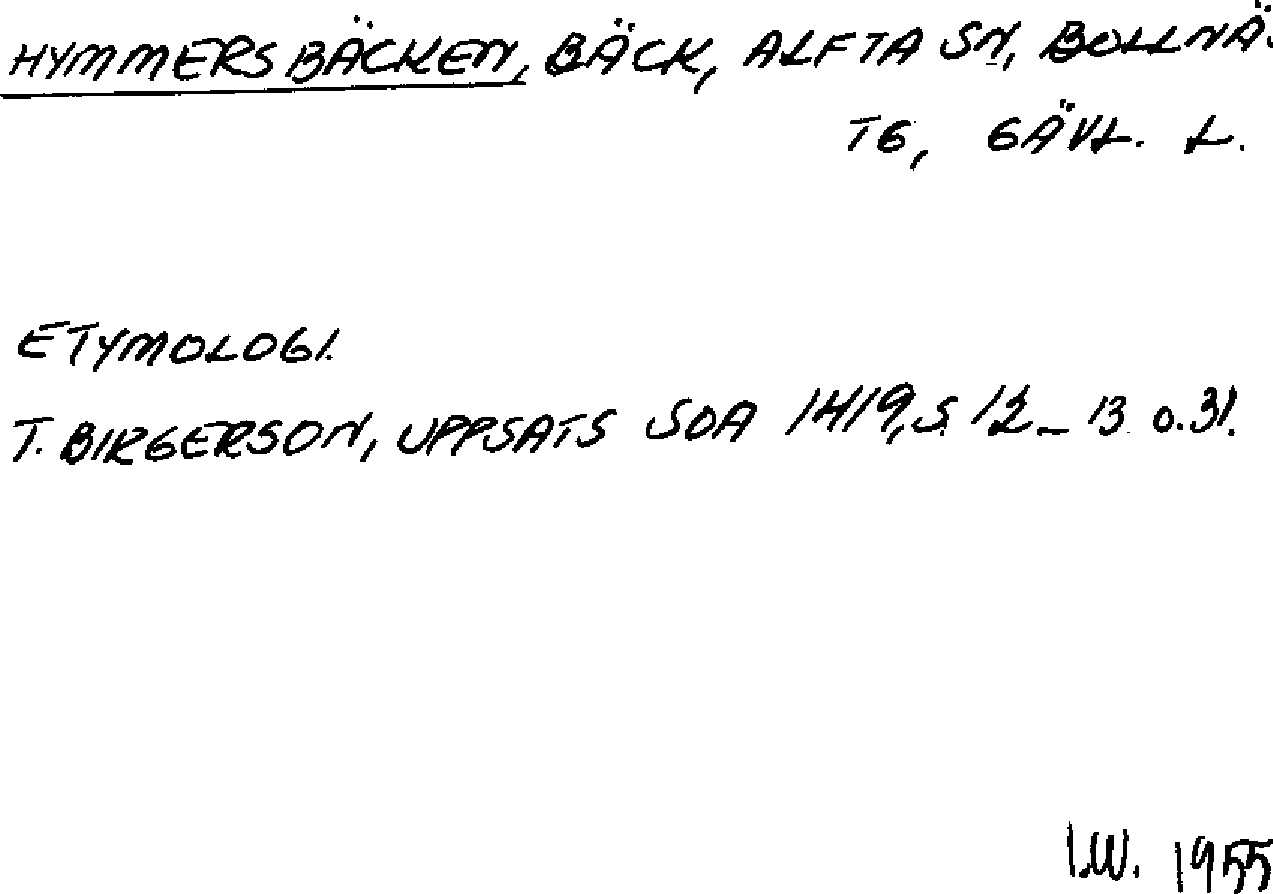 HYMMERSBÄCKEN, BÄCK, ALFTA SN, BOLLNÄ.
TG, GÄVL. L.
ETYMOLOGI.
T. BIRGERSON, UPPSATS SOA 1419, S. 12-13 o. 31.
I.W. 1955